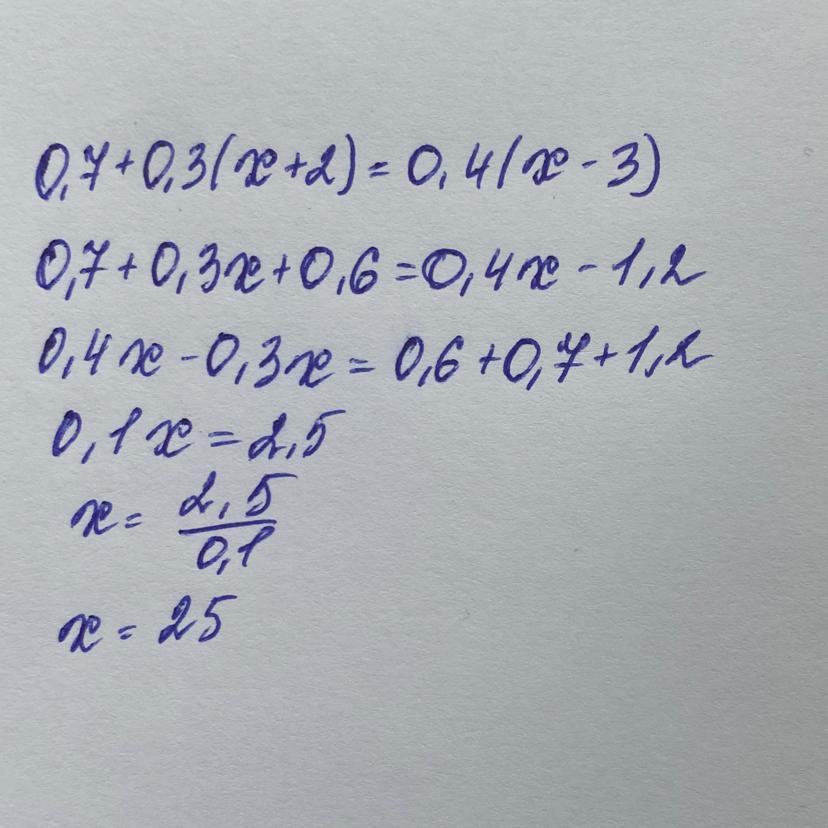 0,7+0,3(x+2)=0,4(x-3)
0,7+0,3x+0,6=0,4x-1,2
0,4x-0,3x=0,6+0,7+1,2
0,1x=2,5
x=2,5/0,1
x=25